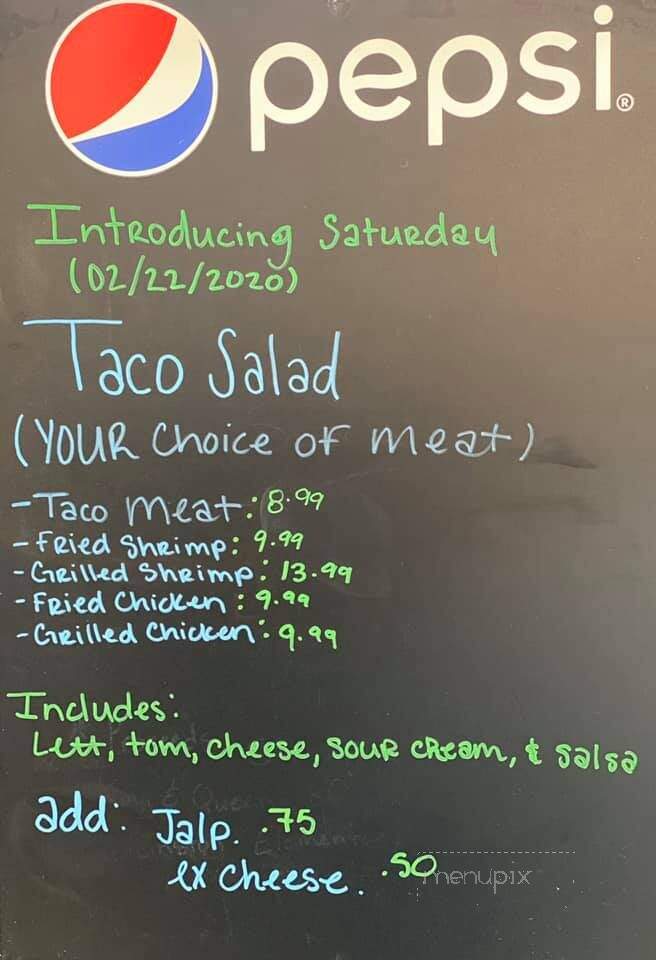 pepsi®
Introducing Saturday
(02/22/2020)
Taco Salad
(YOUR Choice of meat)
- Taco meat: 8.99
- Fried Shrimp: 9.99
- Grilled Shrimp: 13.99
- Fried Chicken: 9.99
- Grilled Chicken: 9.99
Includes:
Lett, tom, cheese, sour cream, & salsa
add: Jalp. .75
ex cheese. .50
menupix